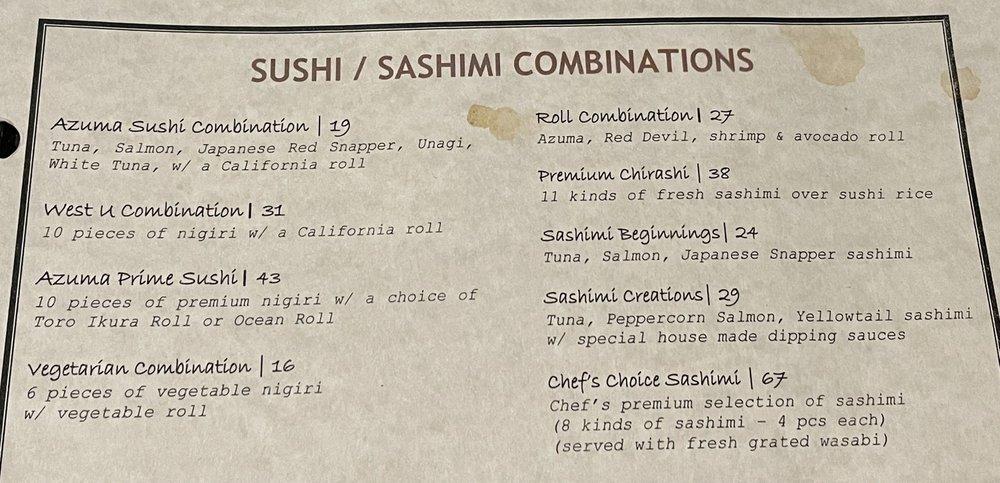 SUSHI / SASHIMI COMBINATIONS
Azuma Sushi Combination | 19
Tuna, Salmon, Japanese Red Snapper, Unagi,
White Tuna, w/ a California roll
West U Combination| 31
10 pieces of nigiri w/ a California roll
Azuma Prime Sushi| 43
10 pieces of premium nigiri w/ a choice of
Toro Ikura Roll or Ocean Roll
Vegetarian Combination | 16
6 pieces of vegetable nigiri
w/ vegetable roll
Roll Combination| 27
Azuma, Red Devil, shrimp & avocado roll
Premium Chirashi | 38
11 kinds of fresh sashimi over sushi rice
Sashimi Beginnings| 24
Tuna, Salmon, Japanese Snapper sashimi
Sashimi Creations| 29
Tuna, Peppercorn Salmon, Yellowtail sashimi
w/ special house made dipping sauces
Chef's Choice Sashimi | 67
Chef's premium selection of sashimi
(8 kinds of sashimi – 4 pcs each)
(served with fresh grated wasabi)